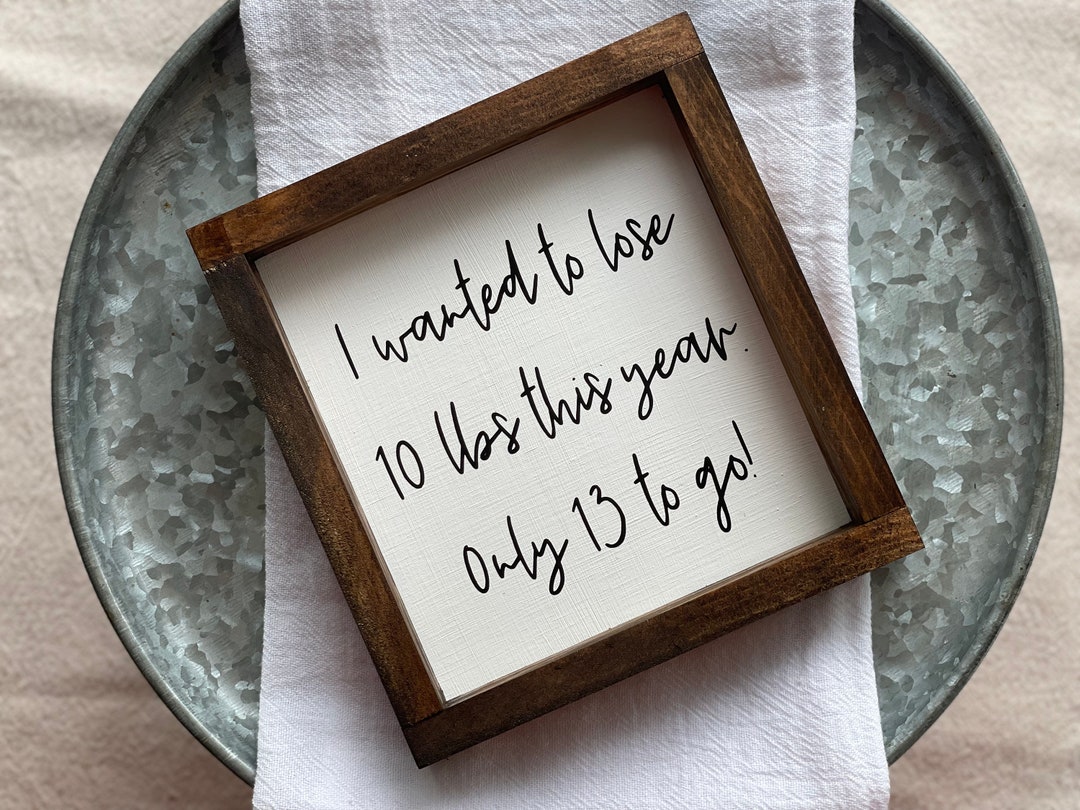 I wanted to lose
10 lbs this year.
Only 13 to go!